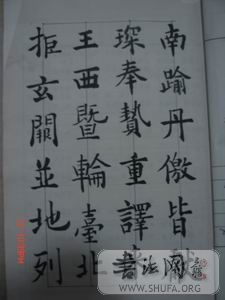 南踰丹徼皆
琛奉贄重譯
王西暨輪臺北
拒玄闕並地列
書法網
WWW.SHUFA.ORG